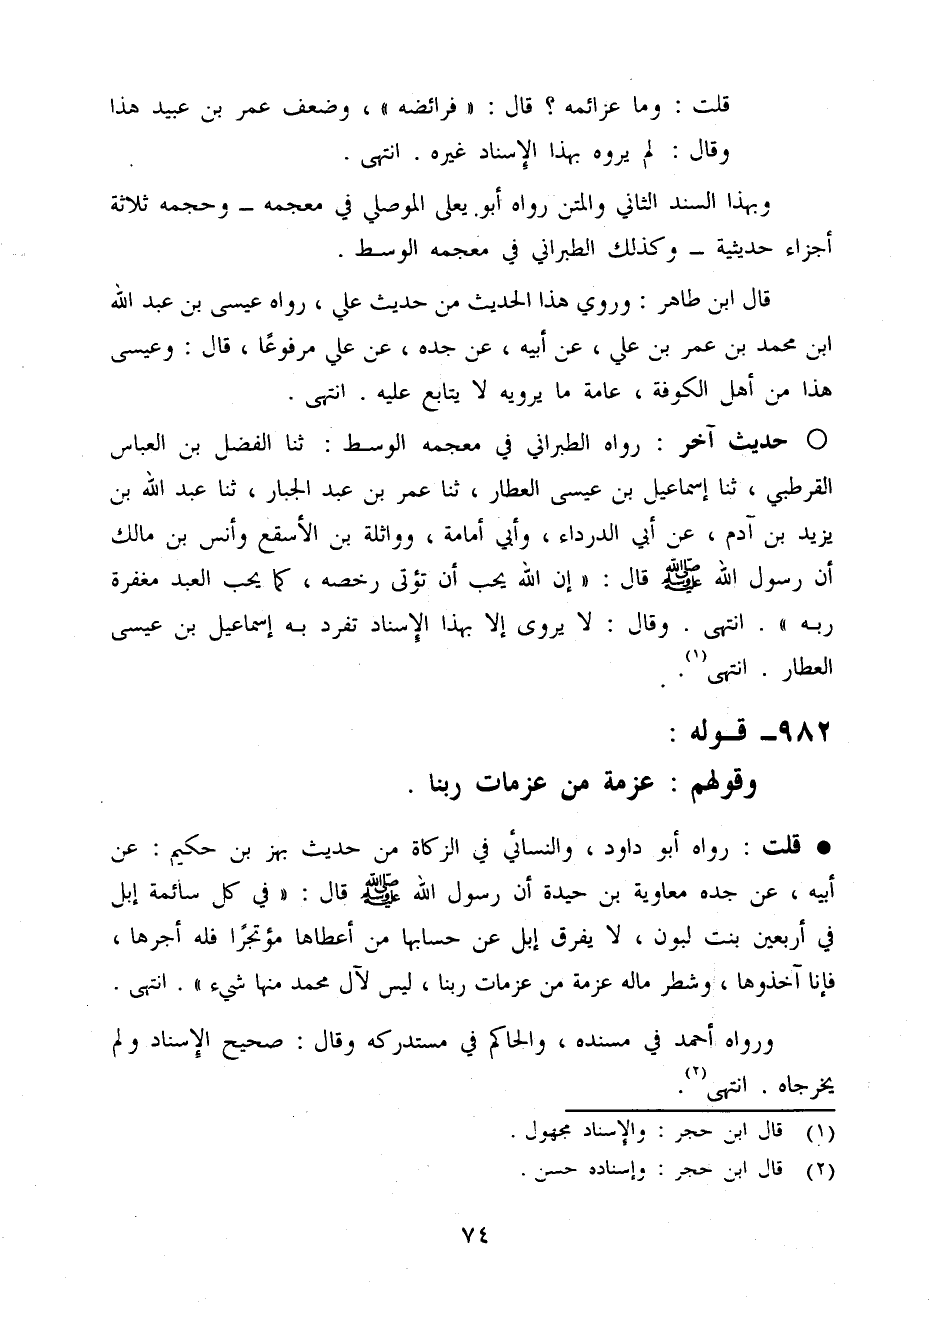 قلت : وما عزائمه ؟ قال : « فرائضه » ، وضعف عمر بن عبيد هذا
وقال : لم يروه بهذا الإسناد غيره . انتهى .
وبهذا السند الثاني والمتن رواه أبو يعلى الموصلي في معجمه – وحجمه ثلاثة
أجزاء حديثية – وكذلك الطبراني في معجمه الوسط .
قال ابن طاهر : وروي هذا الحديث من حديث علي ، رواه عيسى بن عبد الله
ابن محمد بن عمر بن علي ، عن أبيه ، عن جده ، عن علي مرفوعًا ، قال : وعيسى
هذا من أهل الكوفة ، عامة ما يرويه لا يتابع عليه . انتهى .
○ حديث آخر : رواه الطبراني في معجمه الوسط : ثنا الفضل بن العباس
القرطبي ، ثنا إسماعيل بن عيسى العطار ، ثنا عمر بن عبد الجبار ، ثنا عبد الله بن
يزيد بن آدم ، عن أبي الدرداء ، وأبي أمامة ، وواثلة بن الأسقع وأنس بن مالك
أن رسول الله ﷺ قال : « إن الله يحب أن تؤتى رخصه ، كما يحب العبد مغفرة
ربه » . انتهى . وقال : لا يروى إلا بهذا الإسناد تفرد به إسماعيل بن عيسى
العطار . انتهى(١).
٩٨٢– قوله :
وقولهم : عزمة من عزمات ربنا .
● قلت : رواه أبو داود ، والنسائي في الزكاة من حديث بهز بن حكيم : عن
أبيه ، عن جده معاوية بن حيدة أن رسول الله ﷺ قال : « في كل سائمة إبل
في أربعين بنت لبون ، لا يفرق إبل عن حسابها من أعطاها مؤتجرًا فله أجرها ،
فإنا آخذوها ، وشطر ماله عزمة من عزمات ربنا ، ليس لآل محمد منها شيء » . انتهى .
ورواه أحمد في مسنده ، والحاكم في مستدركه وقال : صحيح الإسناد ولم
يخرجاه . انتهى(٢).
(١) قال ابن حجر : والإسناد مجهول .
(٢) قال ابن حجر : وإسناده حسن .
٧٤